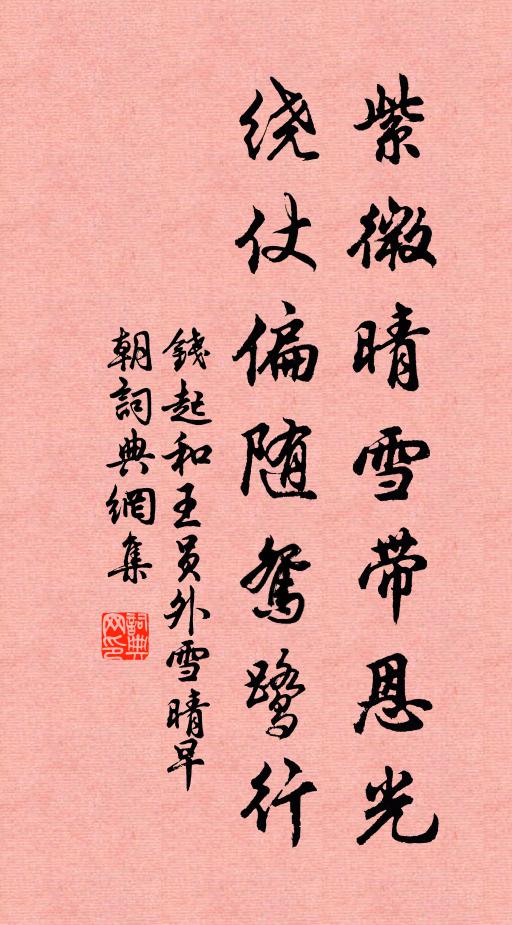 紫微晴雪带恩光
绕仗偏随鸳鹭行
錢起和王员外雪晴早
朝詞典網集
詞典网印